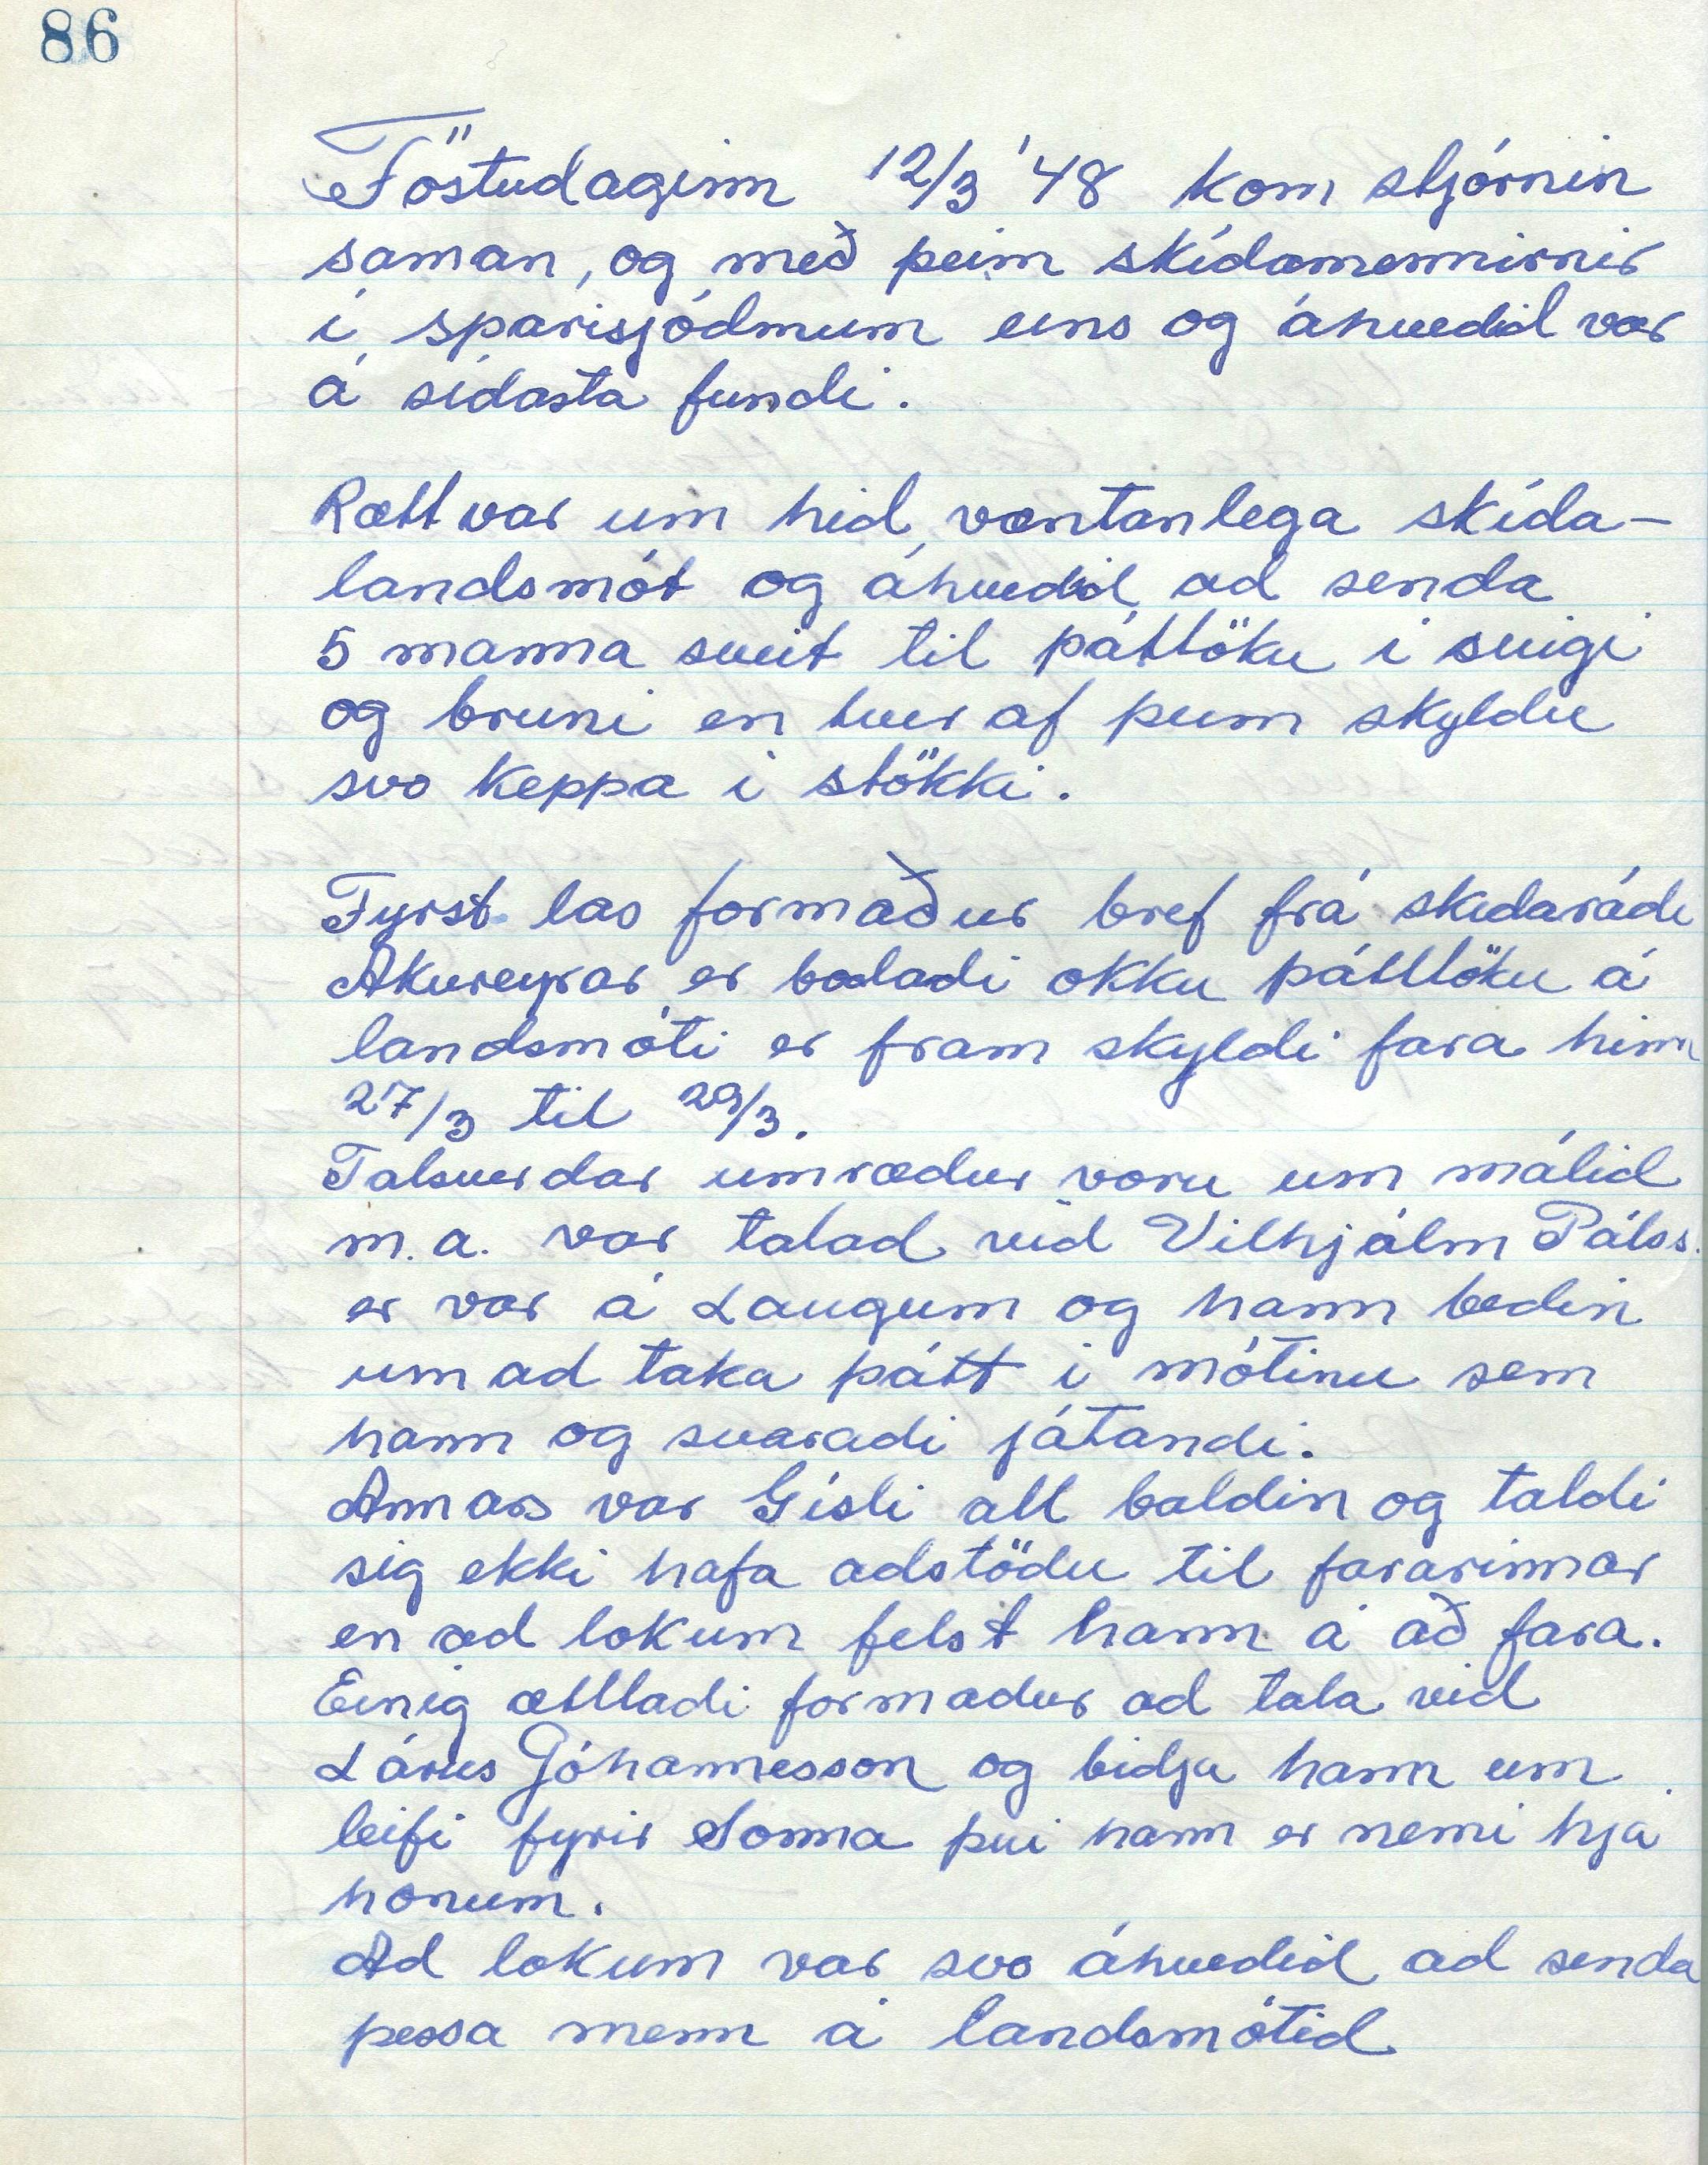 86
Föstudaginn 12/3 '48 kom stjórnin
saman, og með þeim skídamennirnir
í sparisjódnum eins og áhvedid var
á sídasta fundi.
Rætt var um hid væntanlega skída-
landsmót og áhvedid ad senda
5 manna sveit til þáttöku i svigi
og bruni en tveir af þeim skyldu
svo keppa i stökki.
Fyrst las formaður bref frá skidarádi
Akureyrar er bodadi okku þátttöku á
landsmóti er fram skyldi fara hinn
27/3 til 29/3.
Talsverdar umrædur voru um málid
m.a. var talad vid Vilhjálm Pálss.
er var á Laugum og hann bedin
um ad taka þátt i mótinu sem
hann og svaradi játandi.
Annars var Gísli all baldin og taldi
sig ekki hafa adstödu til fararinnar
en ad lokum felst hann á að fara.
Einig ætlladi formadur ad tala vid
Lárus Jóhannesson og bidja hann um
leifi fyrir Sonna þvi hann er nemi hjá
honum.
Ad lokum var svo áhvedid ad senda
þessa menn á landsmótid